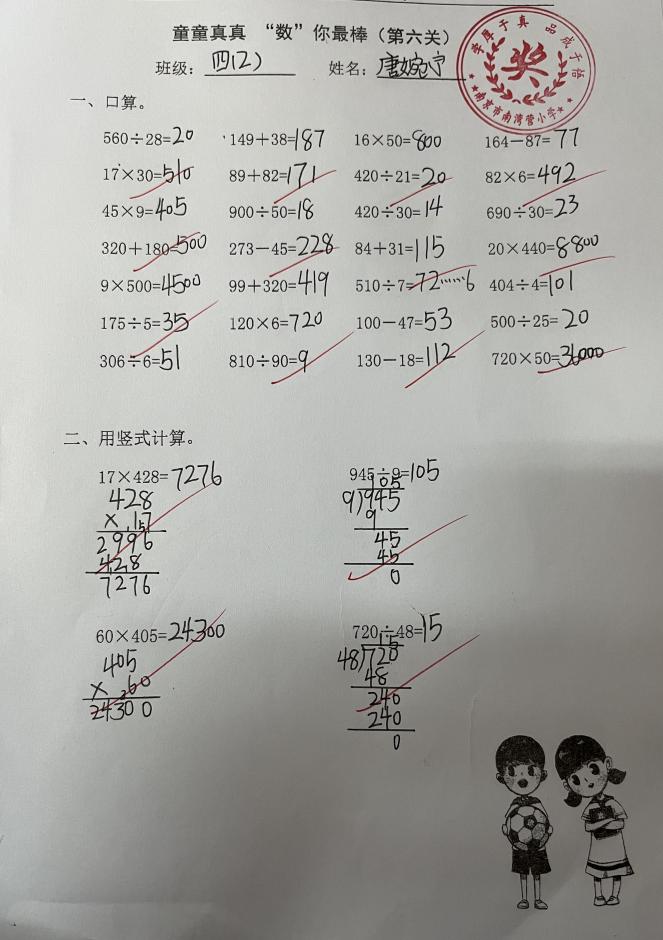 童童真真 “数”你最棒（第六关）
班级：四(2) 姓名：唐婉宁
学厚于真 品成于恪
奖
★★南京市南湾营小学★★
一、口算。
560÷28=20 149+38=187 16×50=800 164-87=77
17×30=510 89+82=171 420÷21=20 82×6=492
45×9=405 900÷50=18 420÷30=14 690÷30=23
320+180=500 273-45=228 84+31=115 20×440=8800
9×500=4500 99+320=419 510÷7=72……6 404÷4=101
175÷5=35 120×6=720 100-47=53 500÷25=20
306÷6=51 810÷90=9 130-18=112 720×50=36000
二、用竖式计算。
17×428=7276 945÷9=105
428
× 17
2996
428
7276
105
9)945
9
45
45
0
60×405=24300 720÷48=15
405
× 60
24300
15
48)720
48
240
240
0